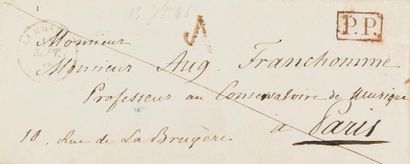 13 7bre 46
P.P.
Monsieur
Monsieur Aug. Franchomme
Professeur au Conservatoire de Musique
10. Rue de La Bruyère à Paris